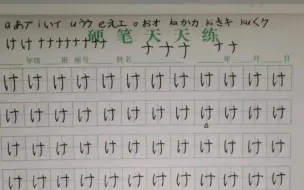 aあア iいイ uうウ eえエ oおオ kaかカ kiきキ kuくク
けけ ナナナナナナナ ナナナ ナナ
硬笔天天练
年级 班 座号 姓名 年 月 日
け け け け け け け け け け け け
け け け け け け け け け け け け
け け け け け け け け け け け け
け け け け け け け け け け け け